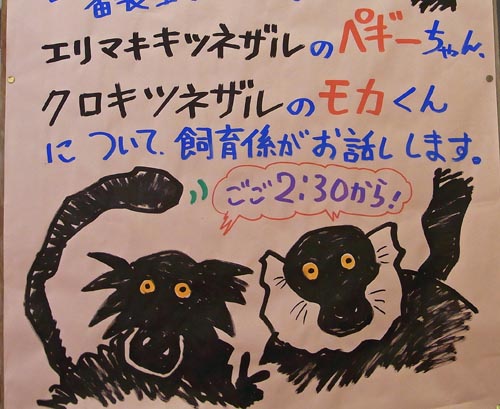 エリマキキツネザルのペギーちゃん、
クロキツネザルのモカくん
について、飼育係がお話しします。
ごご2:30から!